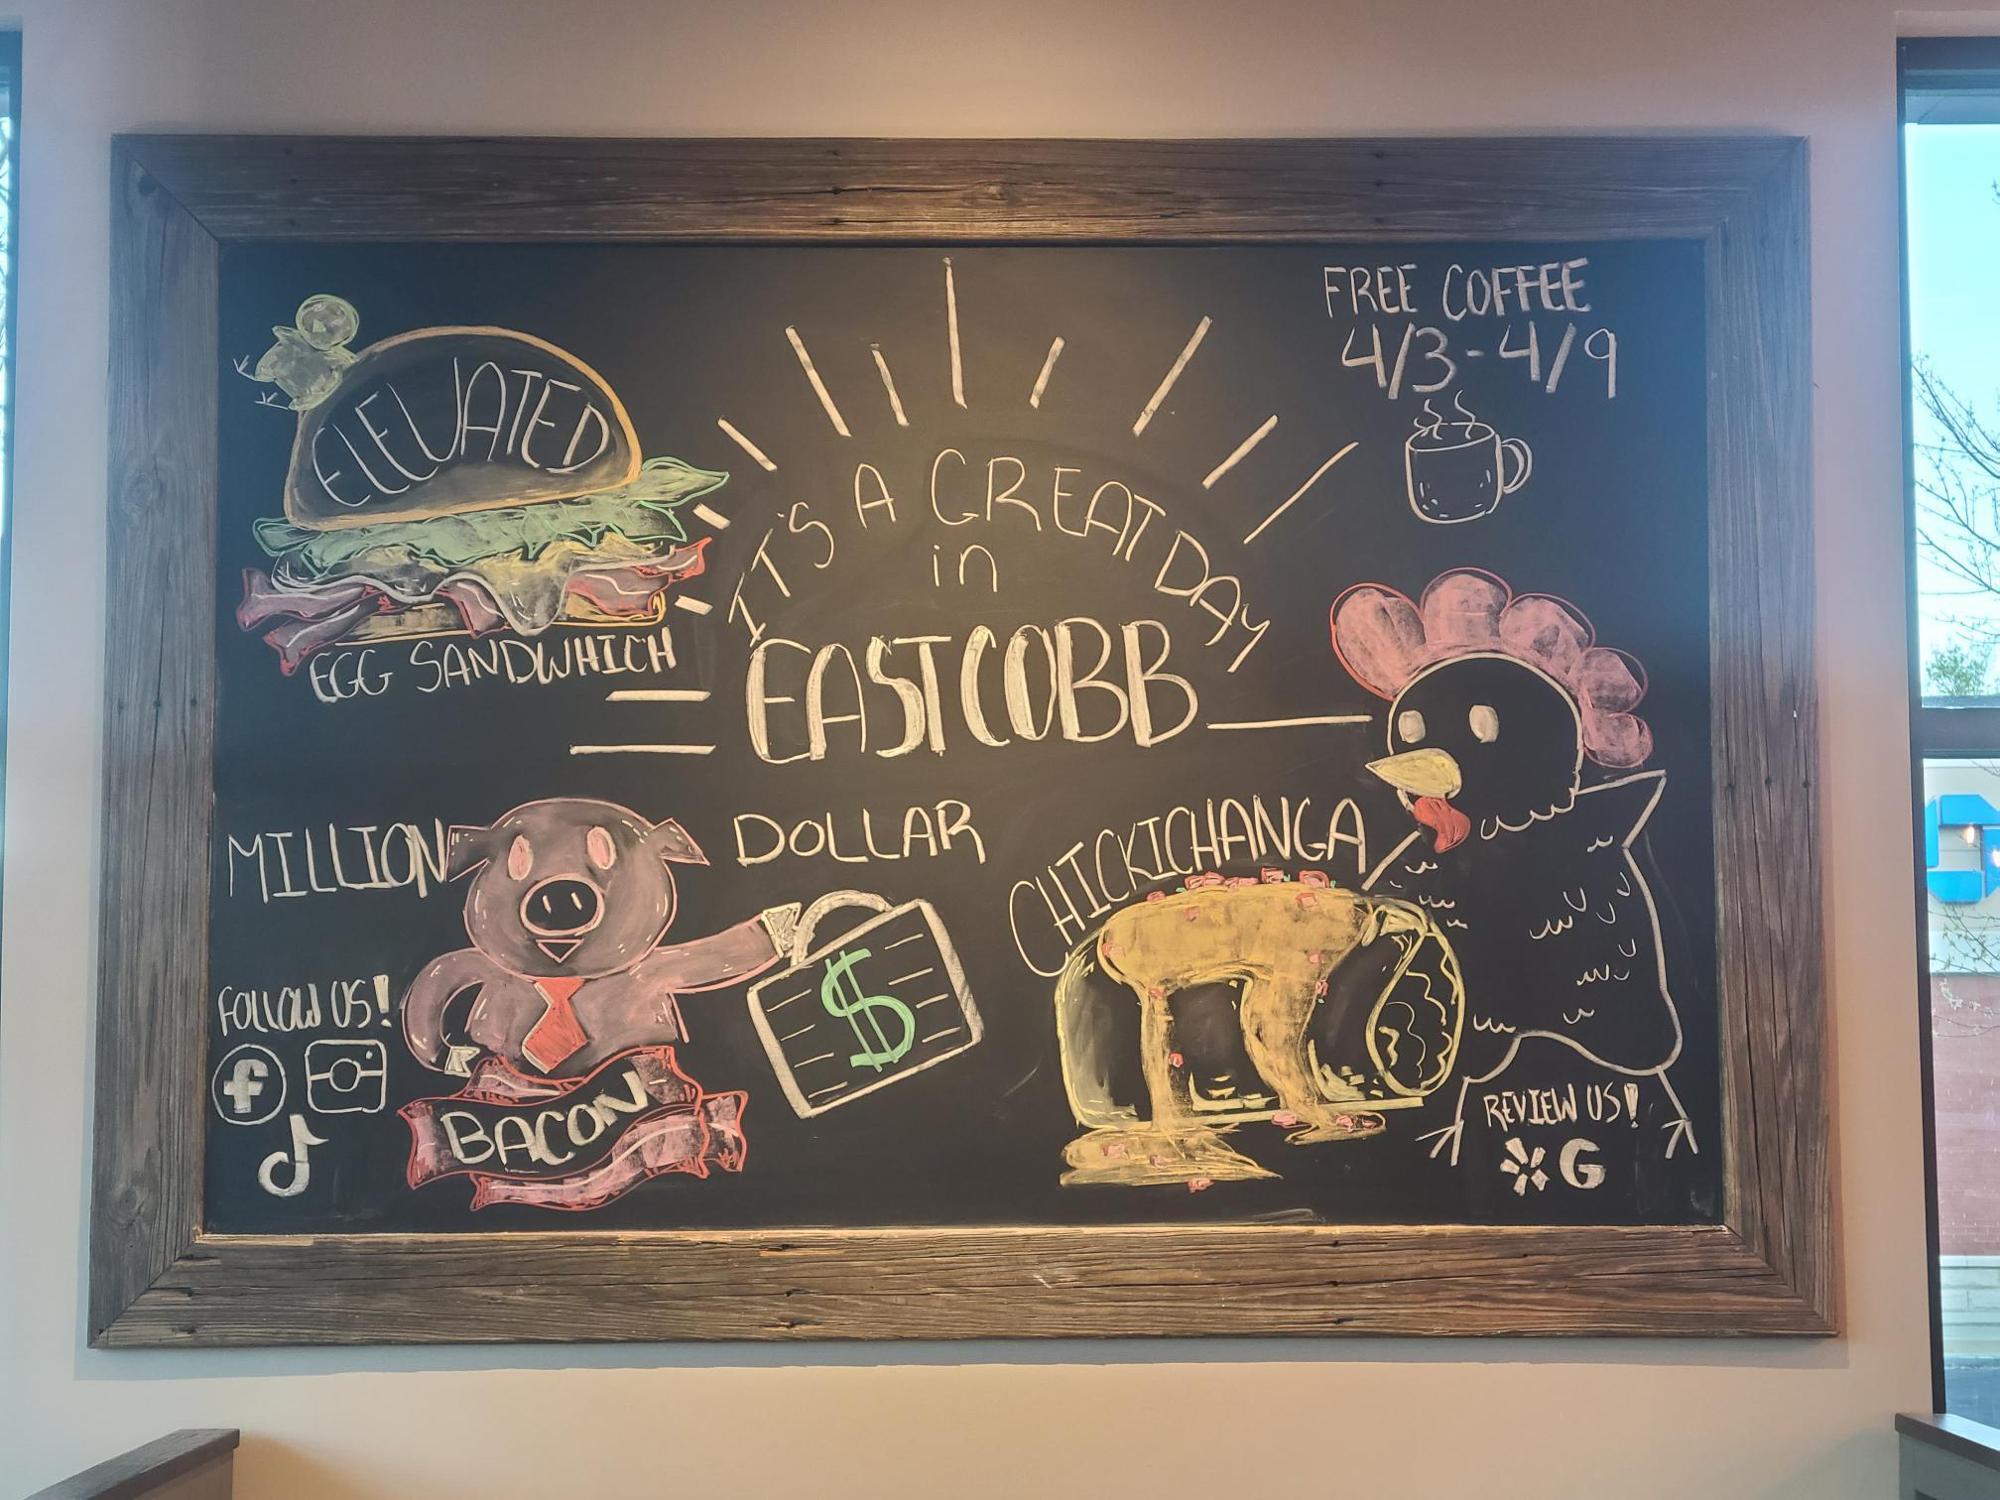 ELEVATED
EGG SANDWHICH
IT'S A GREAT DAY
in
EAST COBB
FREE COFFEE
4/3-4/9
MILLION DOLLAR
BACON
$
CHICKICHANGA
FOLLOW US!
f
REVIEW US!
G